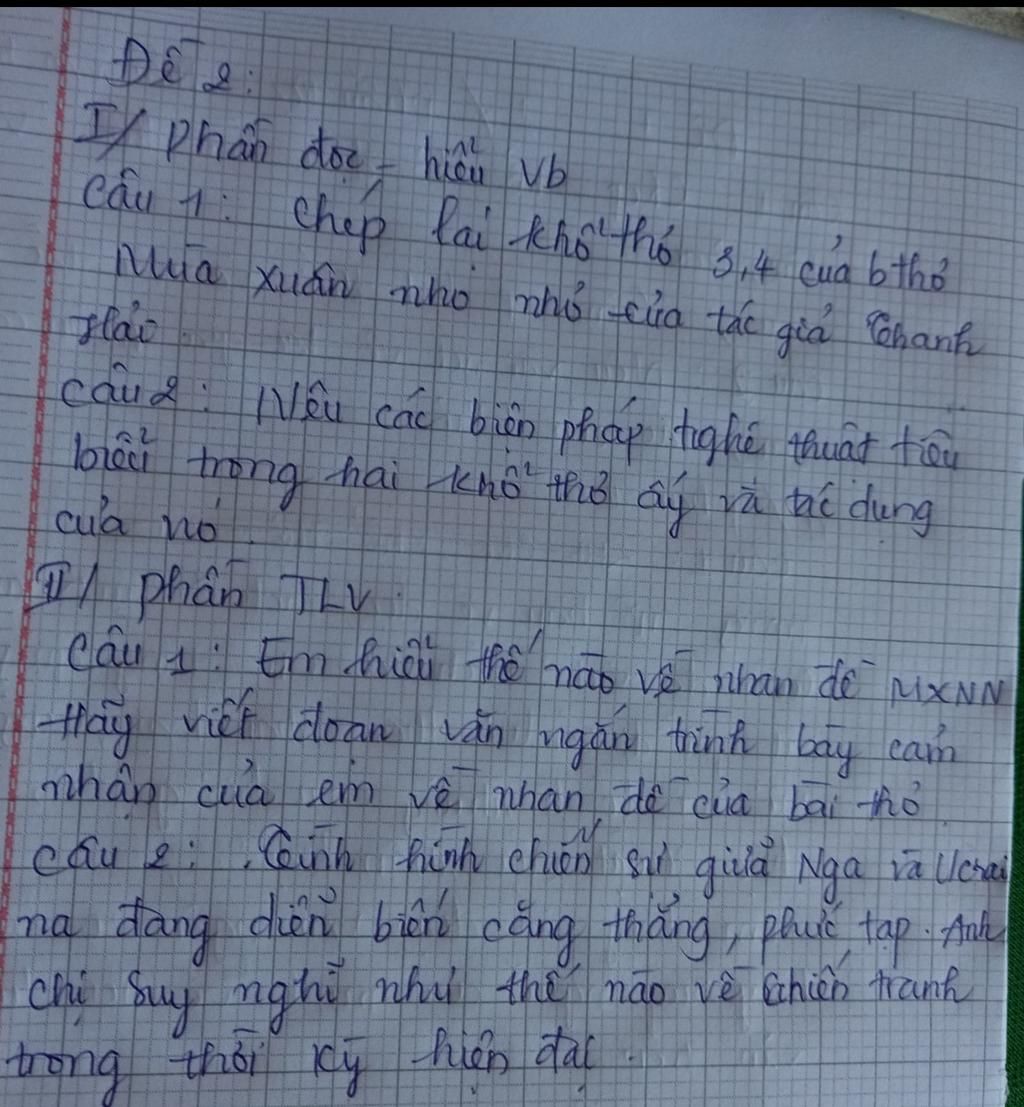 Đề 2:
I/ Phần đọc - hiểu vb
Câu 1: Chép lại khổ thơ 3,4 của b thơ
Mùa xuân nho nhỏ của tác giả Thanh
Hải.
Câu 2: Nêu các biện pháp nghệ thuật tiêu
biểu trong hai khổ thơ ấy và tác dụng
của nó.
II/ Phần TLV.
Câu 1: Em hiểu thế nào về nhan đề MXNN
Hãy viết đoạn văn ngắn trình bày cảm
nhận của em về nhan đề của bài thơ
Câu 2: Tình hình chiến sự giữa Nga và Ucrai
na đang diễn biến căng thẳng, phức tạp. Anh
chị suy nghĩ như thế nào về chiến tranh
trong thời kỳ hiện đại.